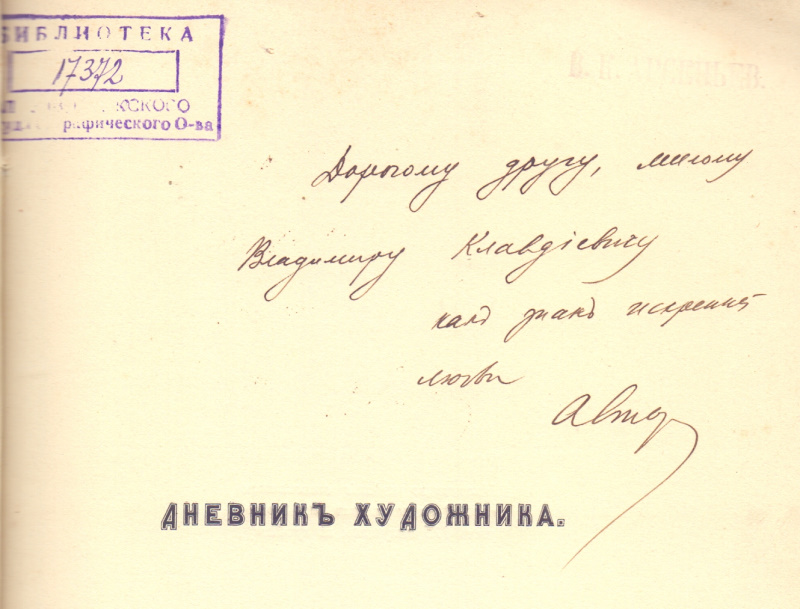 БИБЛИОТЕКА
17372
рафического О-ва
Дорогому другу, милому
Владимиру Клавдіевичу
какъ знакъ искренней
любви
Автор
ДНЕВНИКЪ ХУДОЖНИКА.